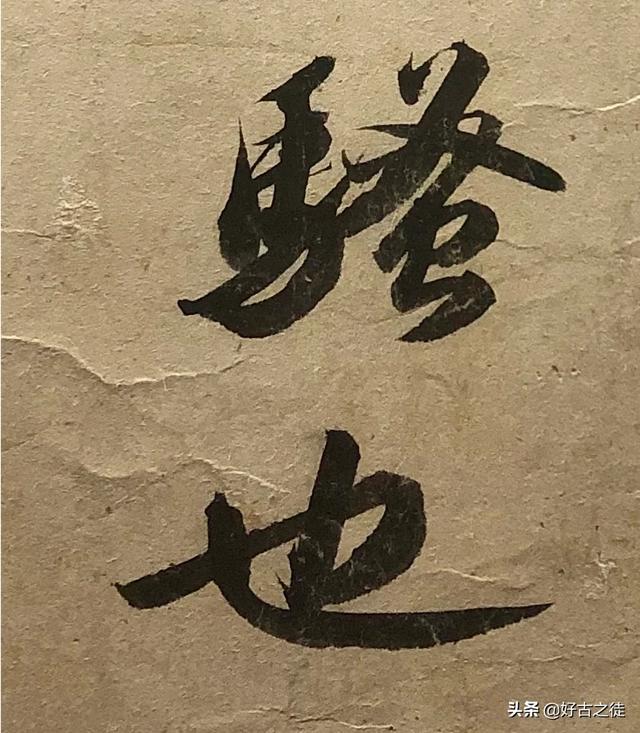 騷
也
头条 @好古之徒